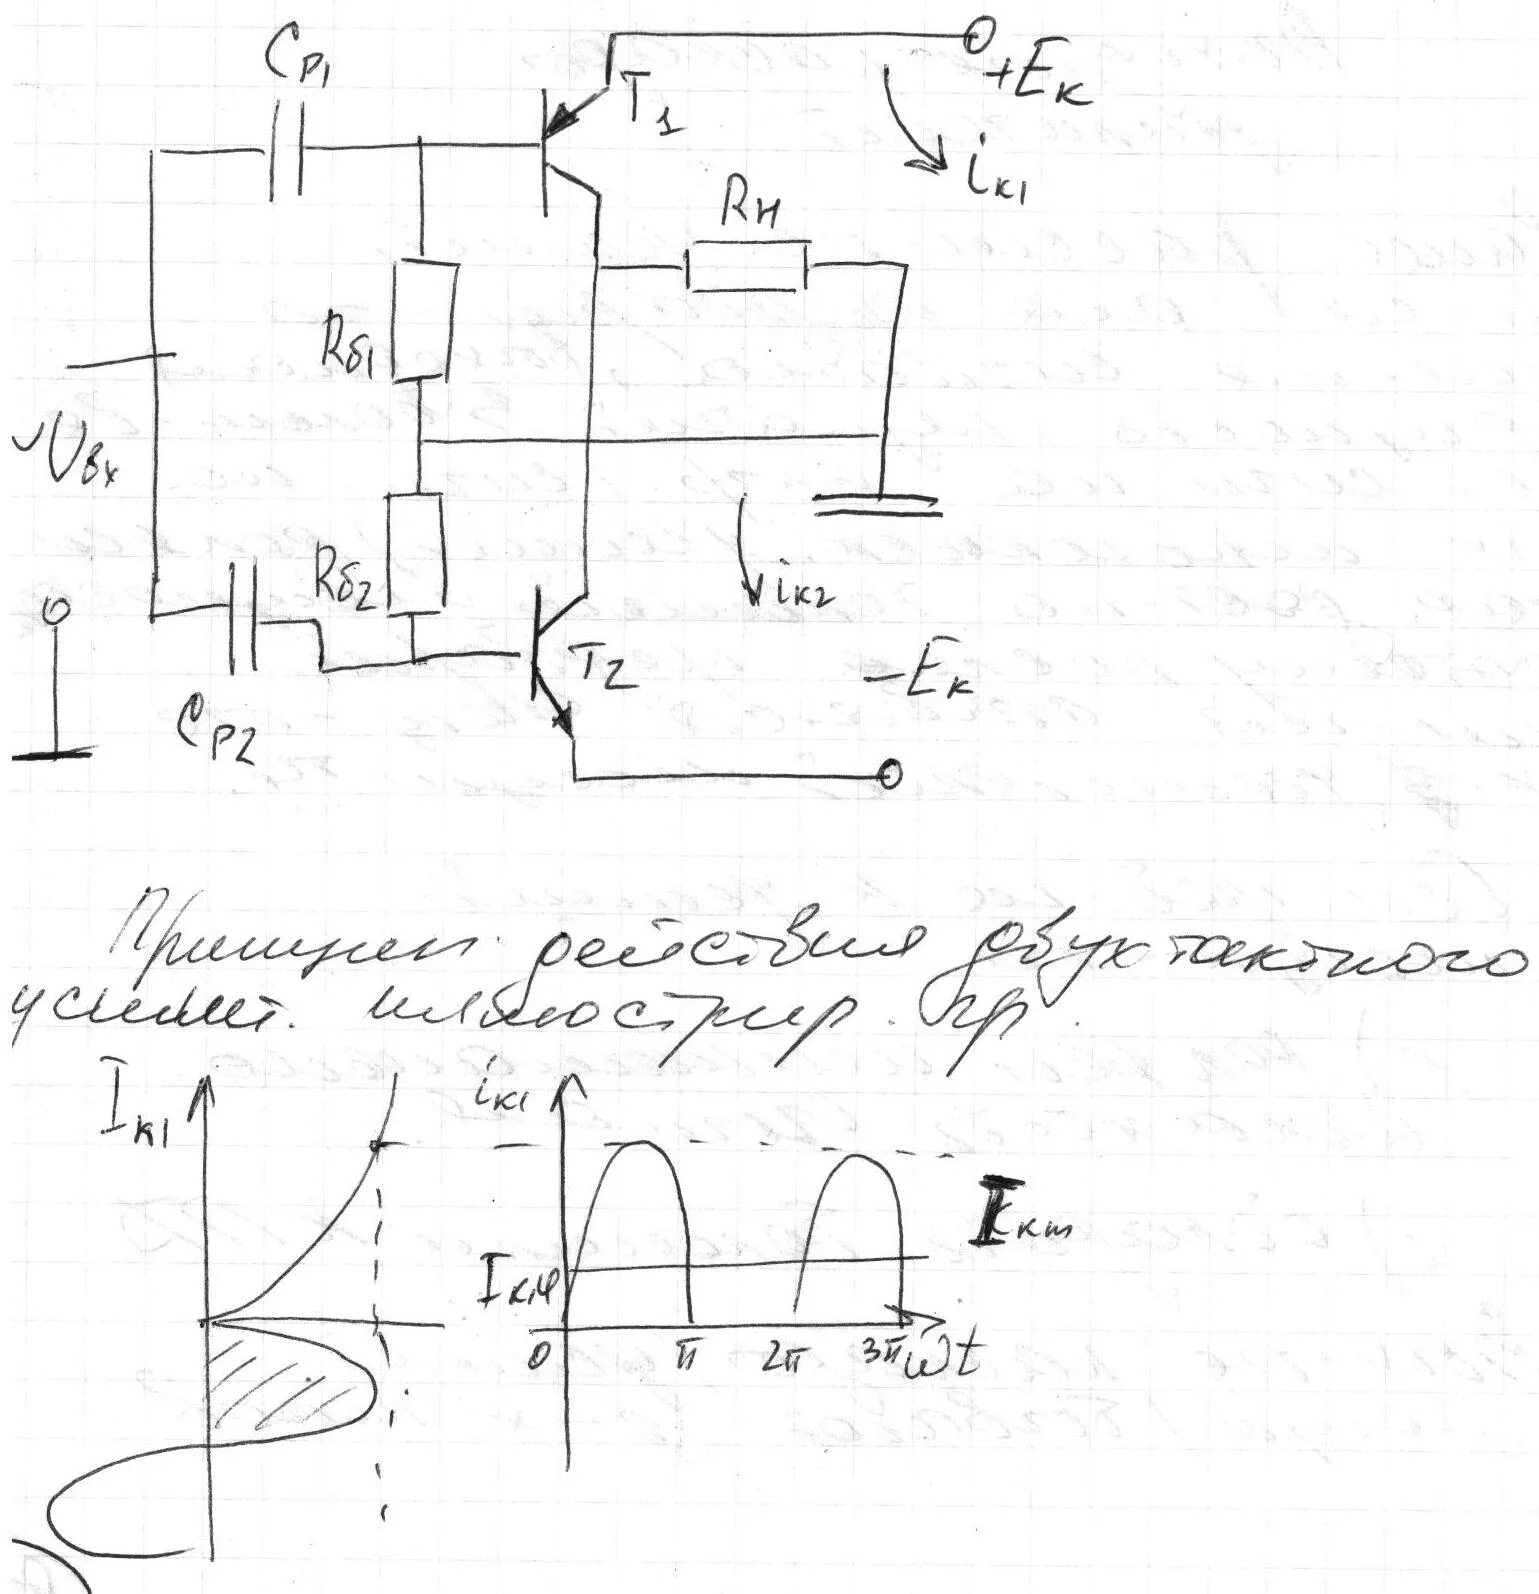 Cр1
T1
+Eк
iк1
Rн
Rб1
~Uвх
Rб2
iк2
T2
-Eк
Cр2
Принцип действия двухтактного
усилит. иллюстрир. гр.
Iк1
iк1
Iкm
Iк,φ
0 π 2π 3π ωt